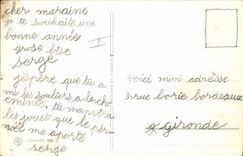 cher maraine
je te souhaite une
bonne année
grose bise
serge
j'espère que tu a
mi les souliers a la che
minée, tu manvera
les jouet que le per
noël ma aporte
serge
voici mon adrèsse
3 rue borie bordeaux
gironde